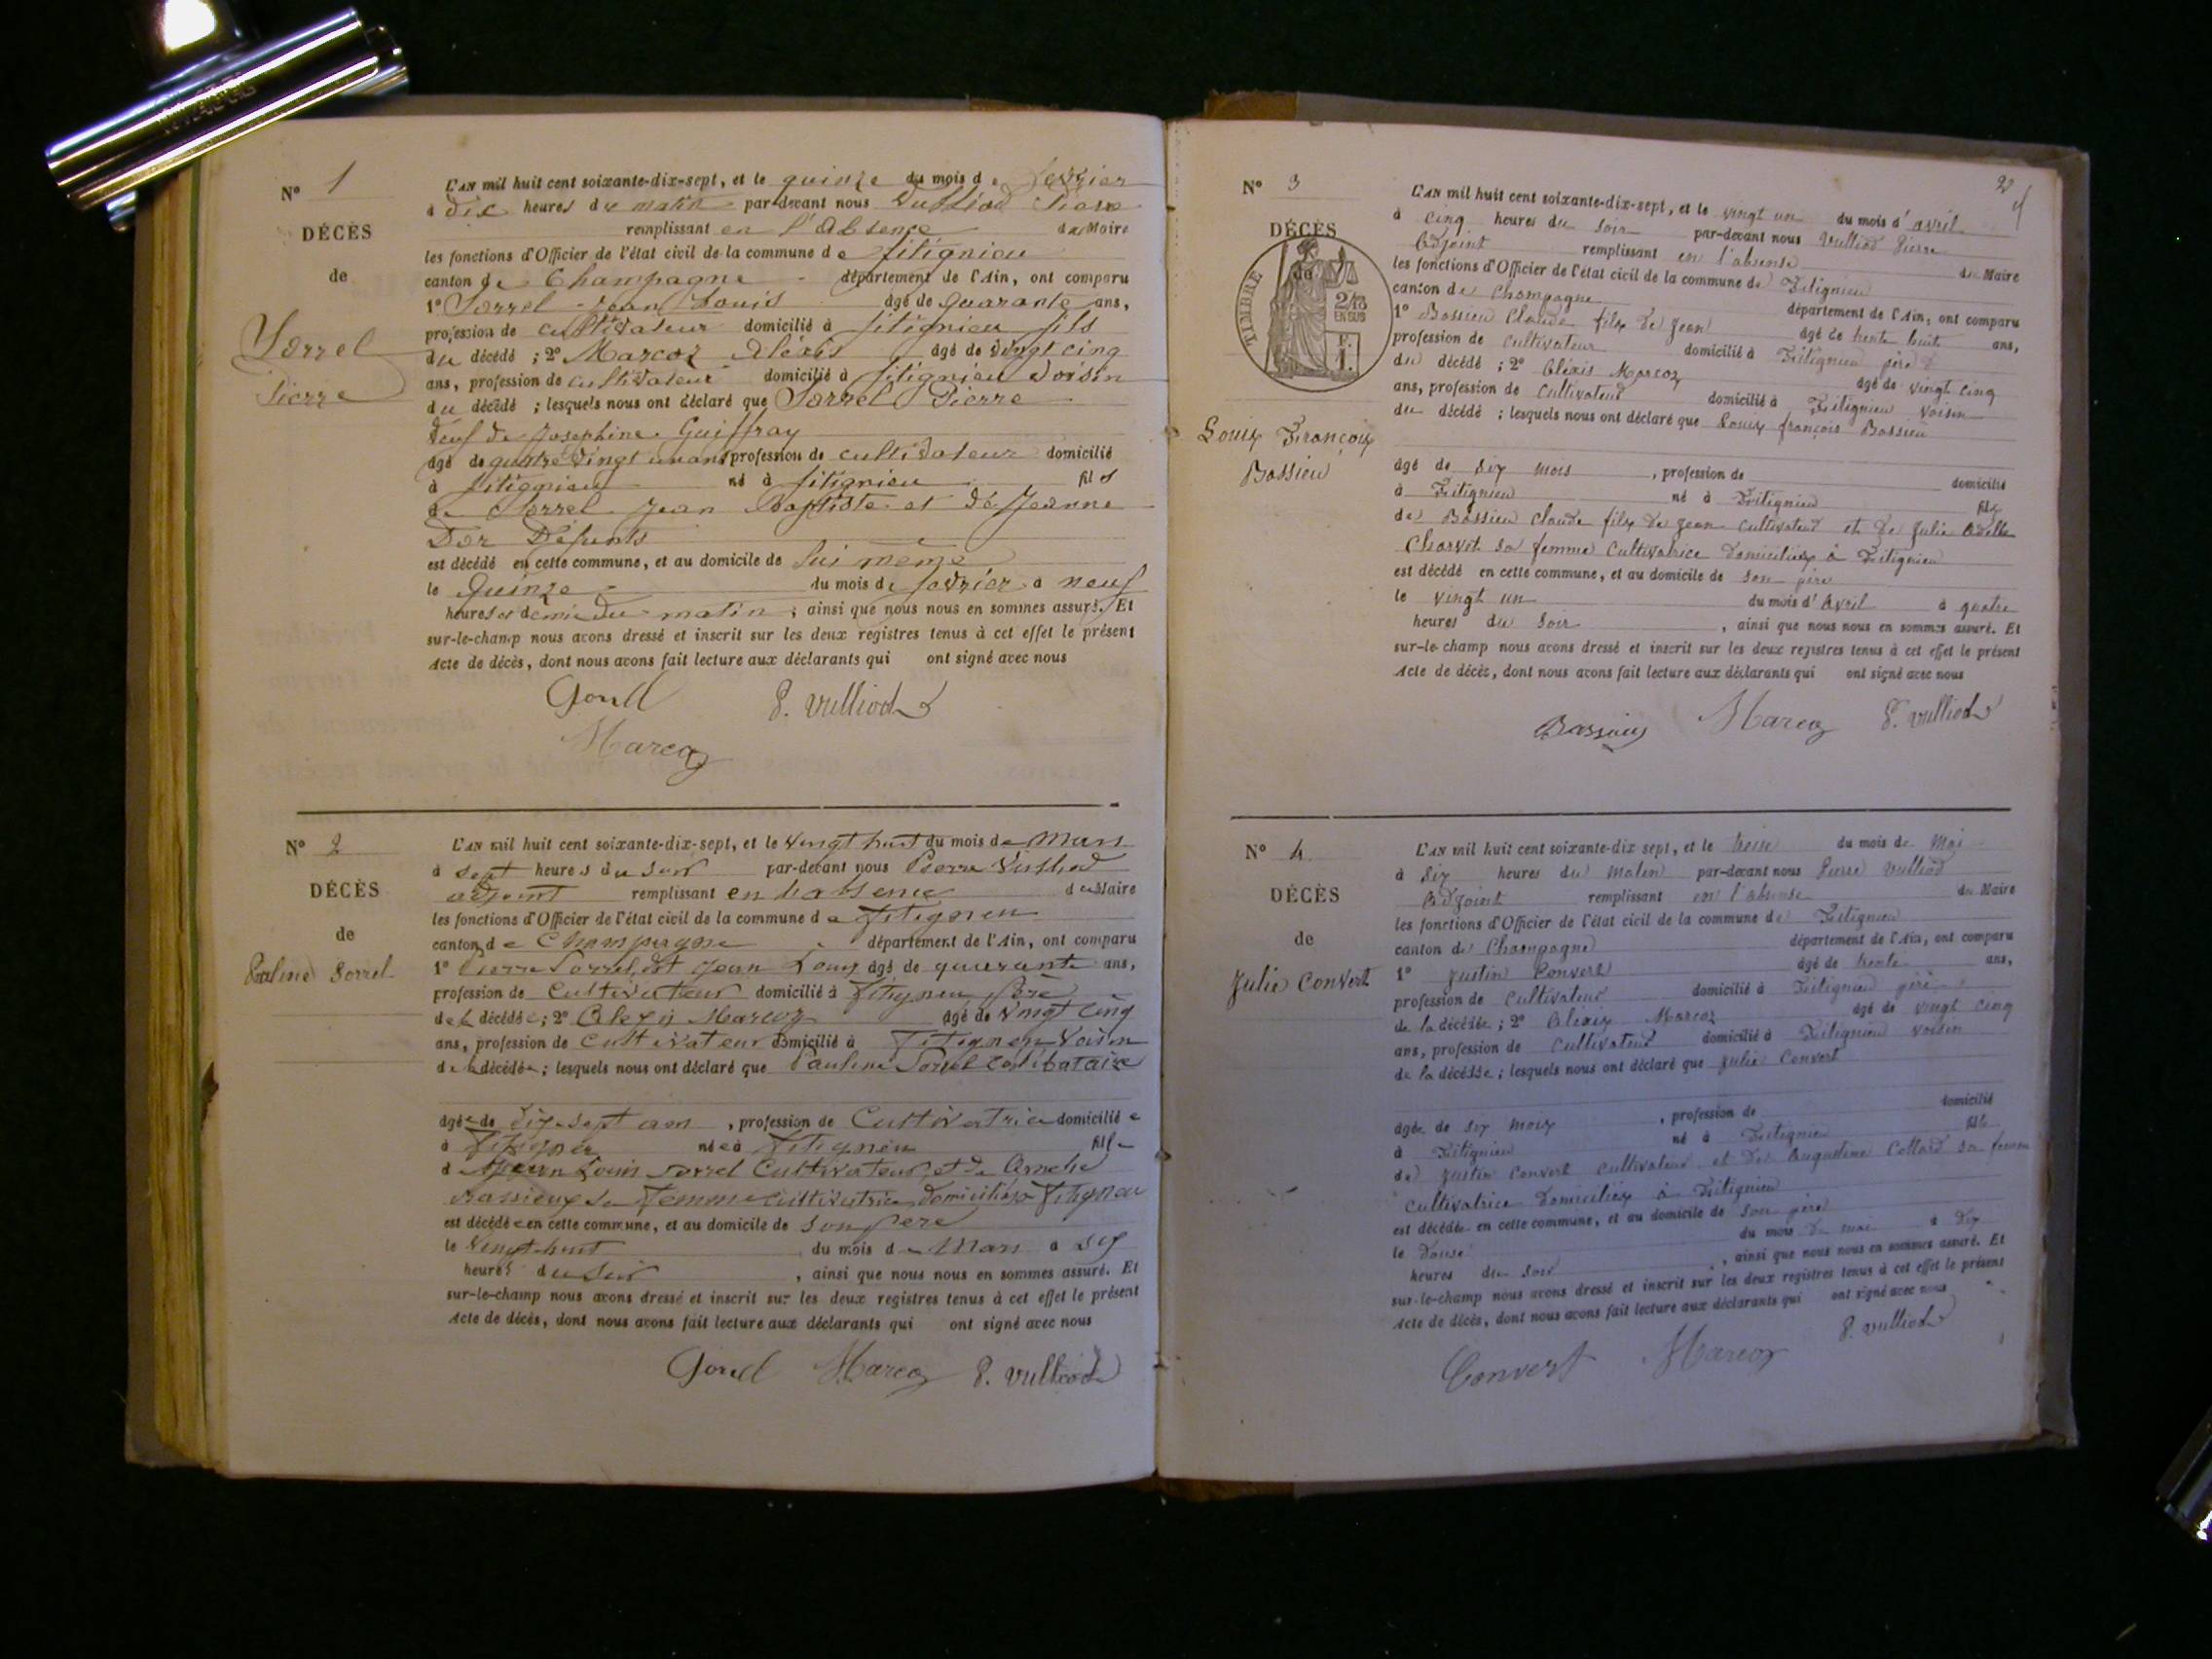 N° 1
DÉCÈS
de
Sorrel
Pierre
L'AN mil huit cent soixante-dix-sept, et le quinze du mois de fevrier
à dix heures du matin par-devant nous Vulliod Pierre
remplissant en l'absence du Maire
les fonctions d'Officier de l'état civil de la commune de fitignieu
canton de Champagne département de l'Ain, ont comparu
1° Sorrel Jean Louis âgé de quarante ans,
profession de cultivateur domicilié à fitignieu fils
du décédé ; 2° Marcoz Aléxis âgé de vingt cinq
ans, profession de cultivateur domicilié à fitignieu voisin
du décédé ; lesquels nous ont déclaré que Sorrel Pierre
veuf de Josephine Guiffray
âgé de quatre vingt un ans profession de cultivateur domicilié
à fitignieu né à fitignieu fils
de Sorrel Jean Baptiste et de Jeanne
Défunts
est décédé en cette commune, et au domicile de lui même
le Quinze du mois de fevrier à neuf
heures et demie du matin ; ainsi que nous nous en sommes assuré. Et
sur-le-champ nous avons dressé et inscrit sur les deux registres tenus à cet effet le présent
Acte de décès, dont nous avons fait lecture aux déclarants qui ont signé avec nous
P. Vulliod
Marcoz
N° 2
DÉCÈS
de
Paline Sorrel
L'AN mil huit cent soixante-dix-sept, et le vingt huit du mois de Mars
à sept heures du soir par-devant nous Pierre Vulliod
adjoint remplissant en l'absence du Maire
les fonctions d'Officier de l'état civil de la commune de Fitignieu
canton de Champagne département de l'Ain, ont comparu
1° Pierre Sorrel dit Jean Louis âgé de quarante ans,
profession de cultivateur domicilié à Fitignieu père
de la décédée ; 2° Alexis Marcoz âgé de vingt cinq
ans, profession de cultivateur domicilié à Fitignieu voisin
de la décédée ; lesquels nous ont déclaré que Pauline Sorrel célibataire
âgée de dix sept ans , profession de Cultivatrice domiciliée
à Fitignieu née à Fitignieu fille
de Jean Louis Sorrel Cultivateur et de
Bassieux sa femme cultivatrice domiciliés à Fitignieu
est décédée en cette commune, et au domicile de son père
le vingt huit du mois de Mars à six
heures du soir , ainsi que nous nous en sommes assuré. Et
sur-le-champ nous avons dressé et inscrit sur les deux registres tenus à cet effet le présent
Acte de décès, dont nous avons fait lecture aux déclarants qui ont signé avec nous
Marcoz P. Vulliod
N° 3
DÉCÈS
de
TIMBRE
2/10
EN SUS
F.
1.
Louis François
Bassieu
L'AN mil huit cent soixante-dix-sept, et le vingt un du mois d'avril
à cinq heures du soir par-devant nous Vulliod Pierre
Adjoint remplissant en l'absense du Maire
les fonctions d'Officier de l'état civil de la commune de Fitignieu
canton de Champagne département de l'Ain, ont comparu
1° Bassieu Claude fils de Jean âgé de trente huit ans,
profession de cultivateur domicilié à Fitignieu père
du décédé ; 2° Alexis Marcoz âgé de vingt cinq
ans, profession de cultivateur domicilié à Fitignieu voisin
du décédé ; lesquels nous ont déclaré que Louis françois Bassieu
âgé de six mois , profession de domicilié
à Fitignieu né à Fitignieu fils
de Bassieu Claude fils de Jean cultivateur et de Julie Adelle
Charvet sa femme Cultivatrice domiciliés à Fitignieu
est décédé en cette commune, et au domicile de son père
le vingt un du mois d'Avril à quatre
heures du soir , ainsi que nous nous en sommes assuré. Et
sur-le-champ nous avons dressé et inscrit sur les deux registres tenus à cet effet le présent
Acte de décès, dont nous avons fait lecture aux déclarants qui ont signé avec nous
Bassieu Marcoz P. Vulliod
N° 4
DÉCÈS
de
Julie Convert
L'AN mil huit cent soixante-dix sept, et le treise du mois de Mai
à six heures du matin par-devant nous Pierre Vulliod
Adjoint remplissant en l'absense du Maire
les fonctions d'Officier de l'état civil de la commune de Fitignieu
canton de Champagne département de l'Ain, ont comparu
1° Justin Convert âgé de trente ans,
profession de cultivateur domicilié à Fitignieu père
de la décédée ; 2° Alexis Marcoz âgé de vingt cinq
ans, profession de cultivateur domicilié à Fitignieu voisin
de la décédée ; lesquels nous ont déclaré que Julie Convert
âgée de six mois , profession de domicilié
à Fitignieu né à Fitignieu fille
de Justin Convert cultivateur et de Augustine Collard sa femme
cultivatrice domiciliés à Fitignieu
est décédée en cette commune, et au domicile de son père
le douse du mois de mai à dix
heures du soir , ainsi que nous nous en sommes assuré. Et
sur-le-champ nous avons dressé et inscrit sur les deux registres tenus à cet effet le présent
Acte de décès, dont nous avons fait lecture aux déclarants qui ont signé avec nous
Convert Marcoz P. Vulliod